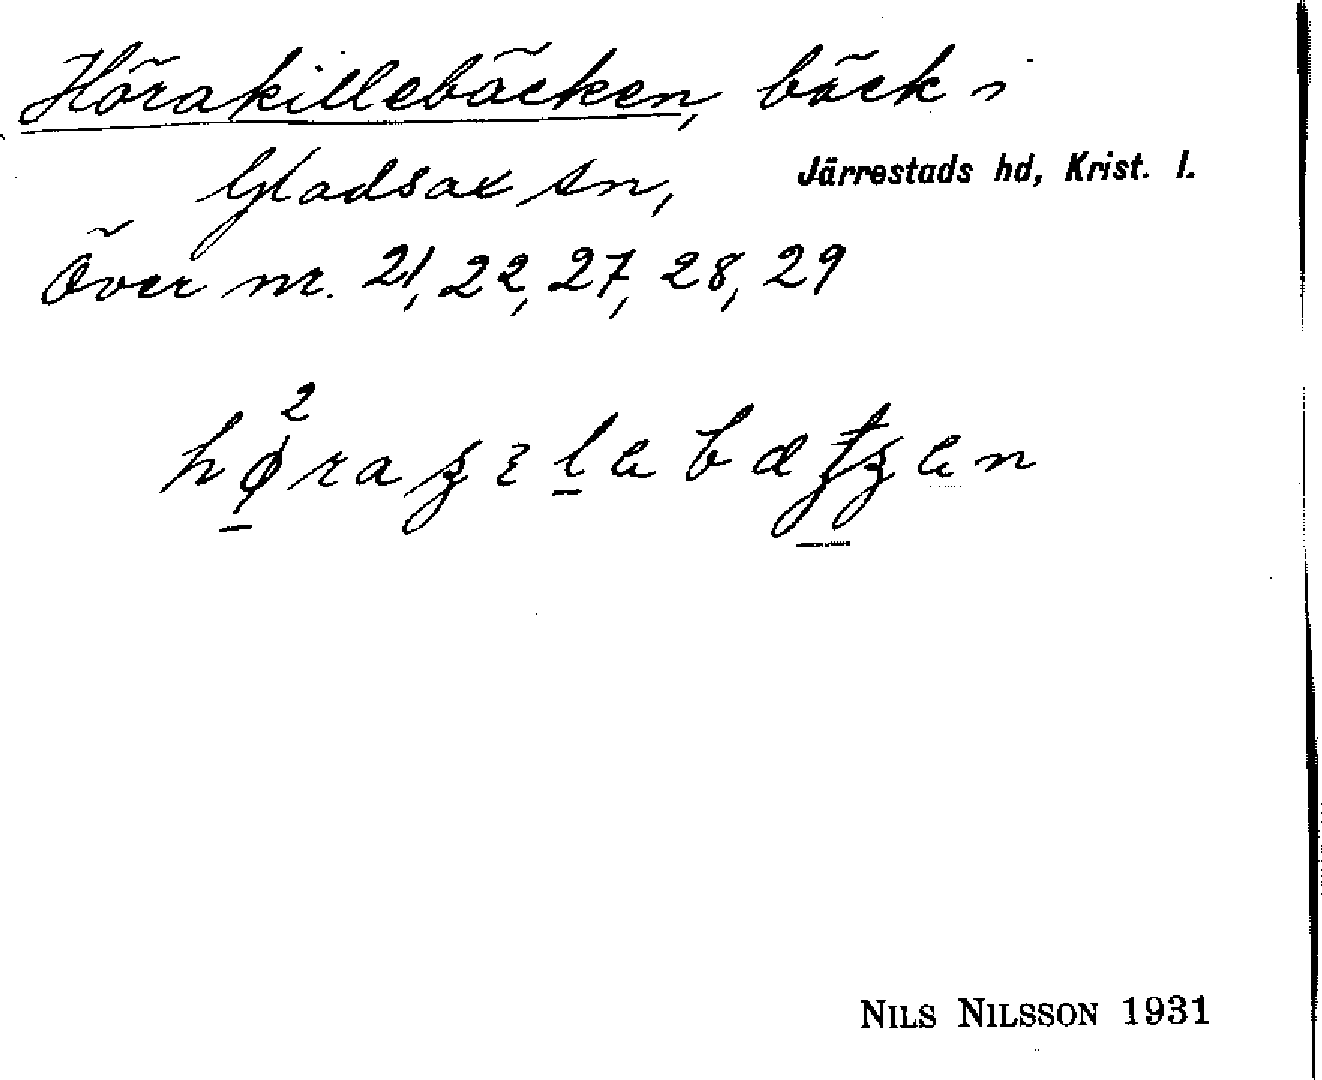 Hörakillebäcken, bäck i
Gladsax sn, Järrestads hd, Krist. l.
Över nr. 21, 22, 27, 28, 29
NILS NILSSON 1931